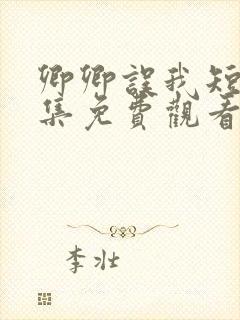 卿卿誤我短
集免費觀看
李壯